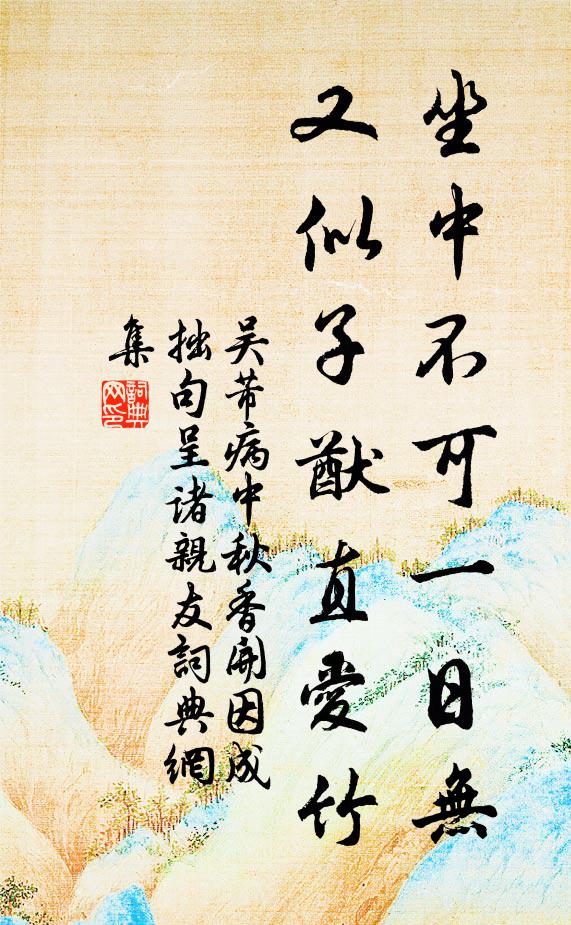 坐中不可一日無
又似子猷直愛竹
吴芾病中秋香開因成
拙句呈诸親友詞典網
集
詞典网印